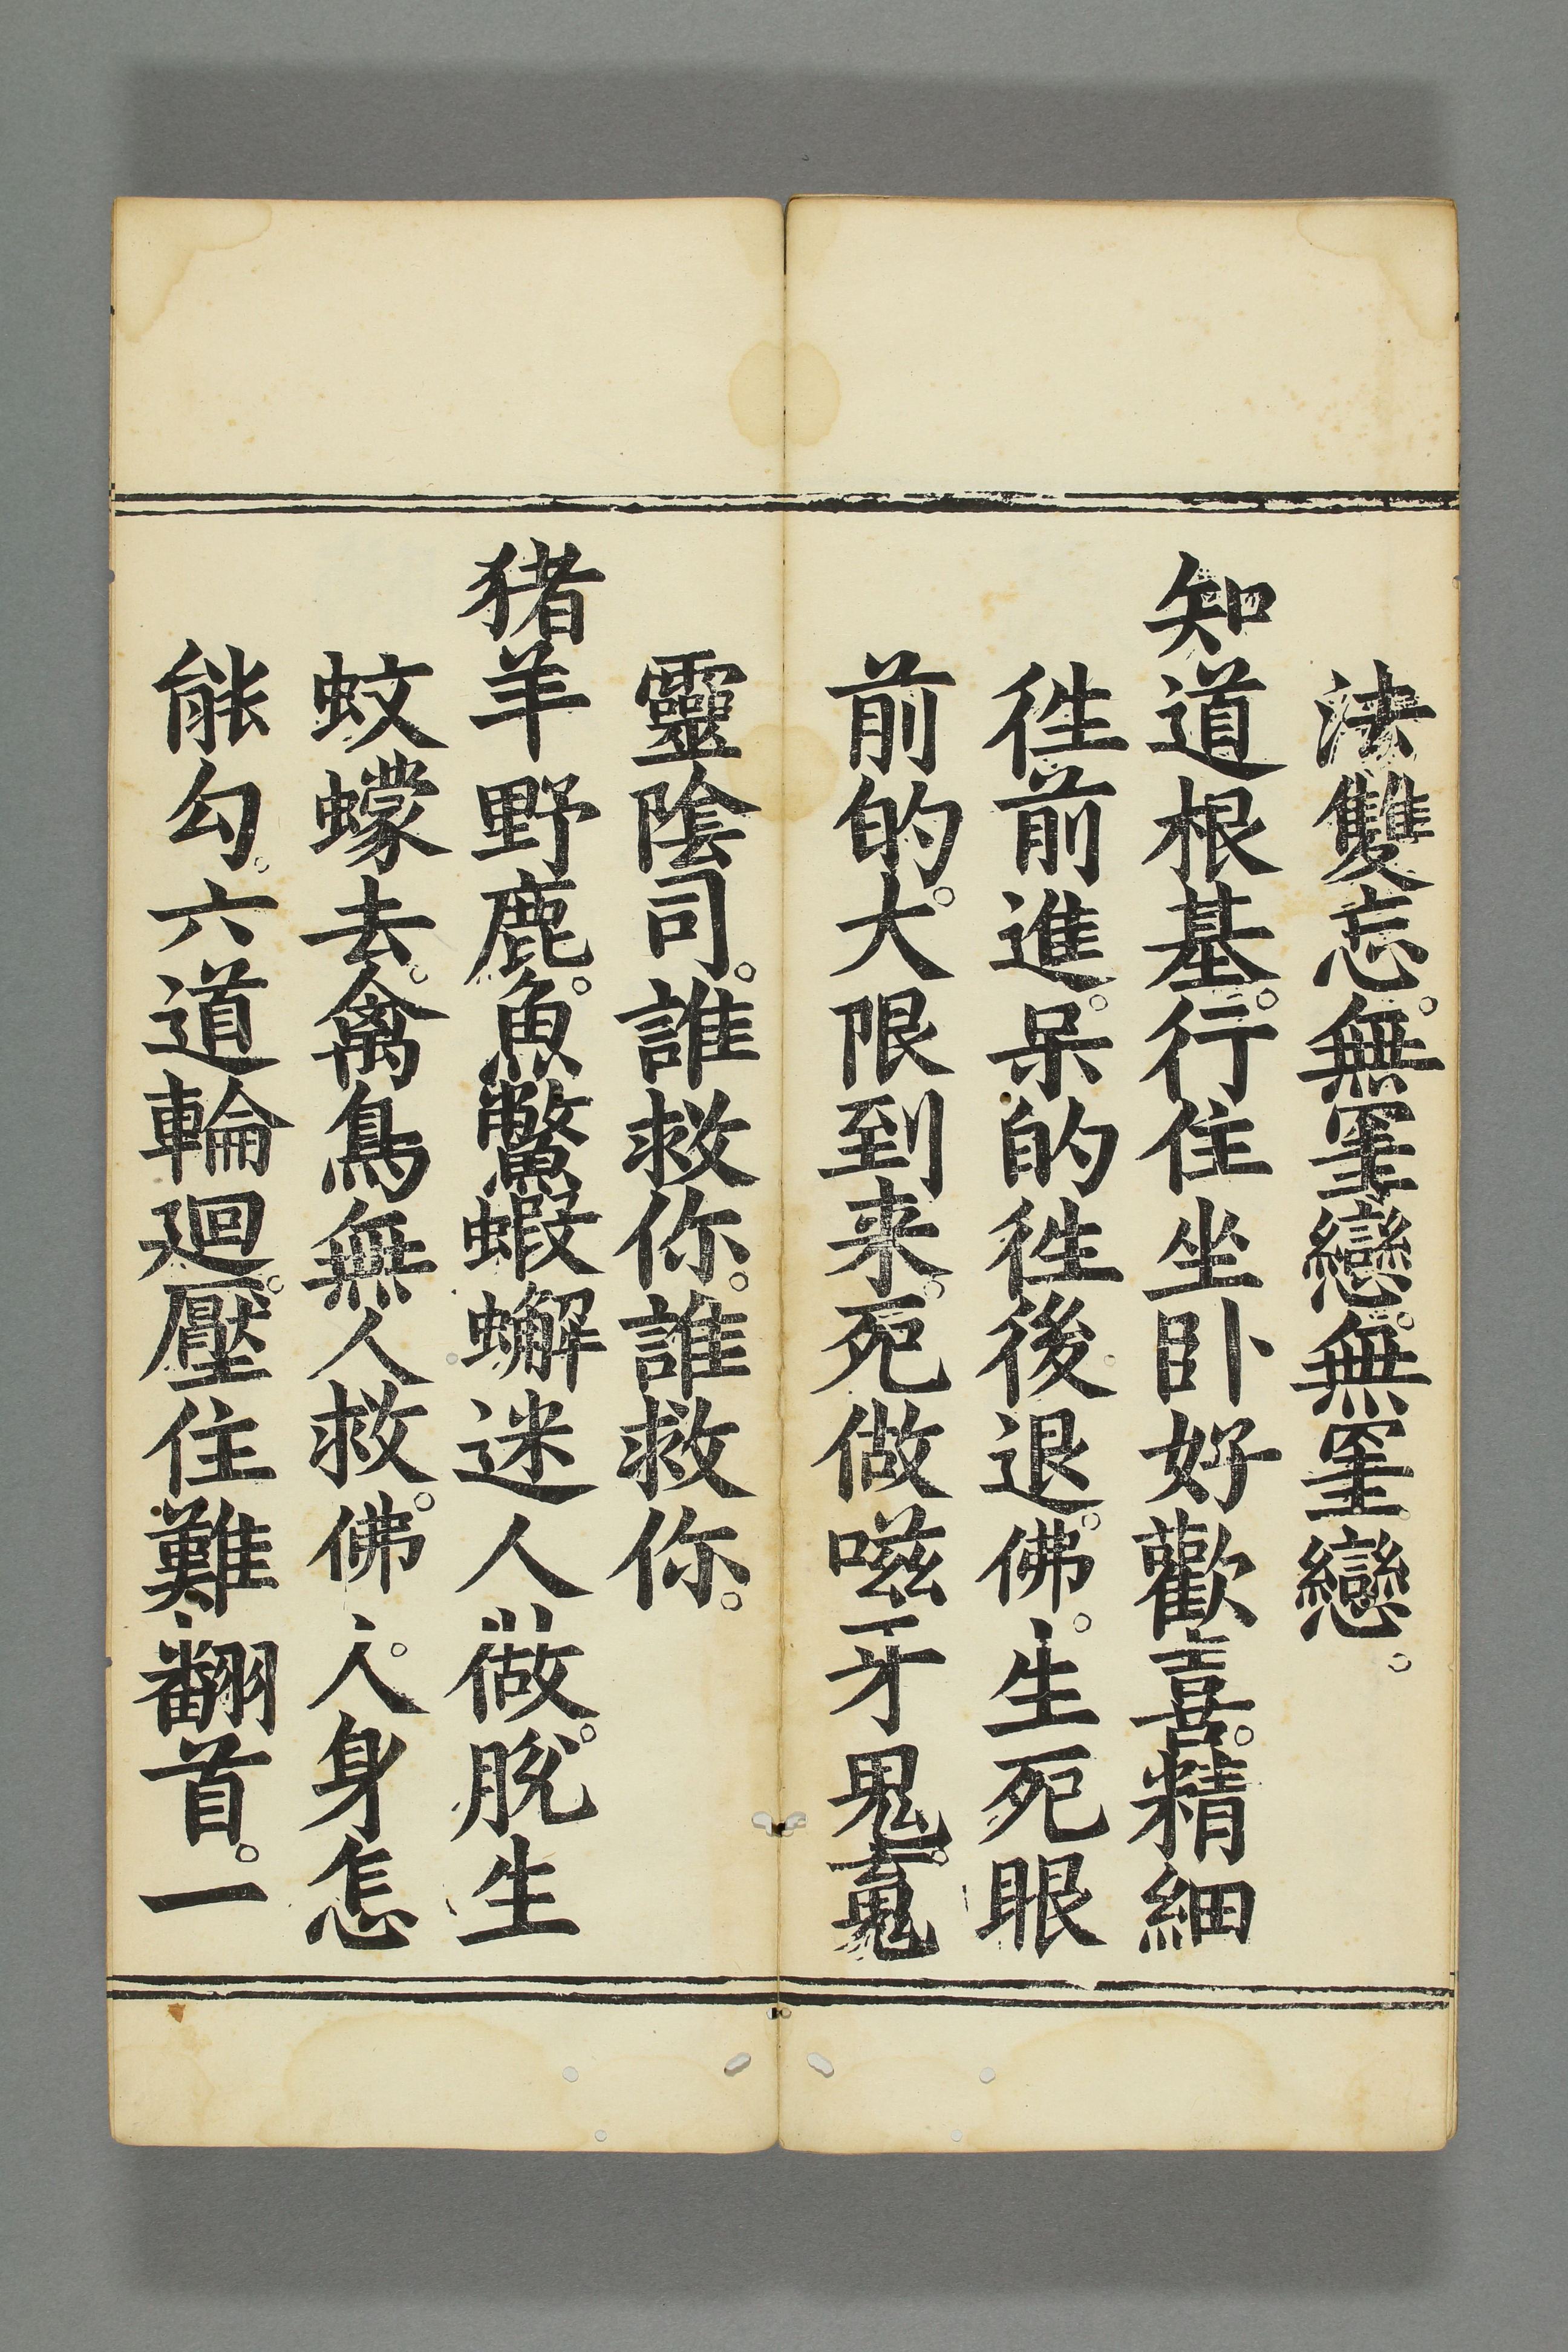 法雙忘。無罣戀。無罣戀。
知道根基。行住坐卧好歡喜。精細
徃前進。呆的徃後退。佛。生死眼
前的。大限到来。死做嗞牙鬼。
靈隂司。誰救你。誰救你。
猪羊野鹿。魚鱉蝦蠏迷人做。脱生
蚊蠓去。禽鳥無人救。佛。人身怎
能勾。六道輪廻。壓住難翻首。一